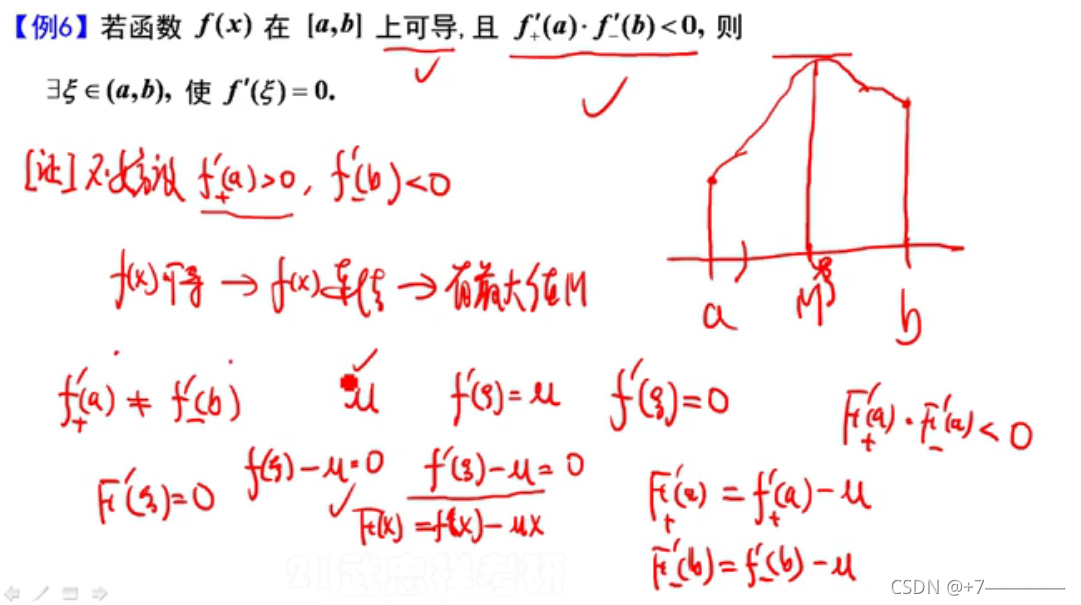 【例6】若函数 f(x) 在 [a,b] 上可导, 且 f′₊(a)·f′₋(b)<0, 则
∃ξ∈(a,b), 使 f′(ξ)=0.
[证] 不妨设 f′₊(a)>0, f′₋(b)<0
f(x)可导 → f(x)连续 → 有最大值M
a M ξ b
f′₊(a) ≠ f′₋(b) μ f′(ξ)=μ f′(ξ)=0
F′₊(a)·F′₋(a)<0
F′(ξ)=0 f(ξ)-μ=0 f′(ξ)-μ=0
F′₊(a)=f′₊(a)-μ
F(x)=f(x)-μx
F′₋(b)=f′₋(b)-μ
21武忠祥考研
CSDN @+7————